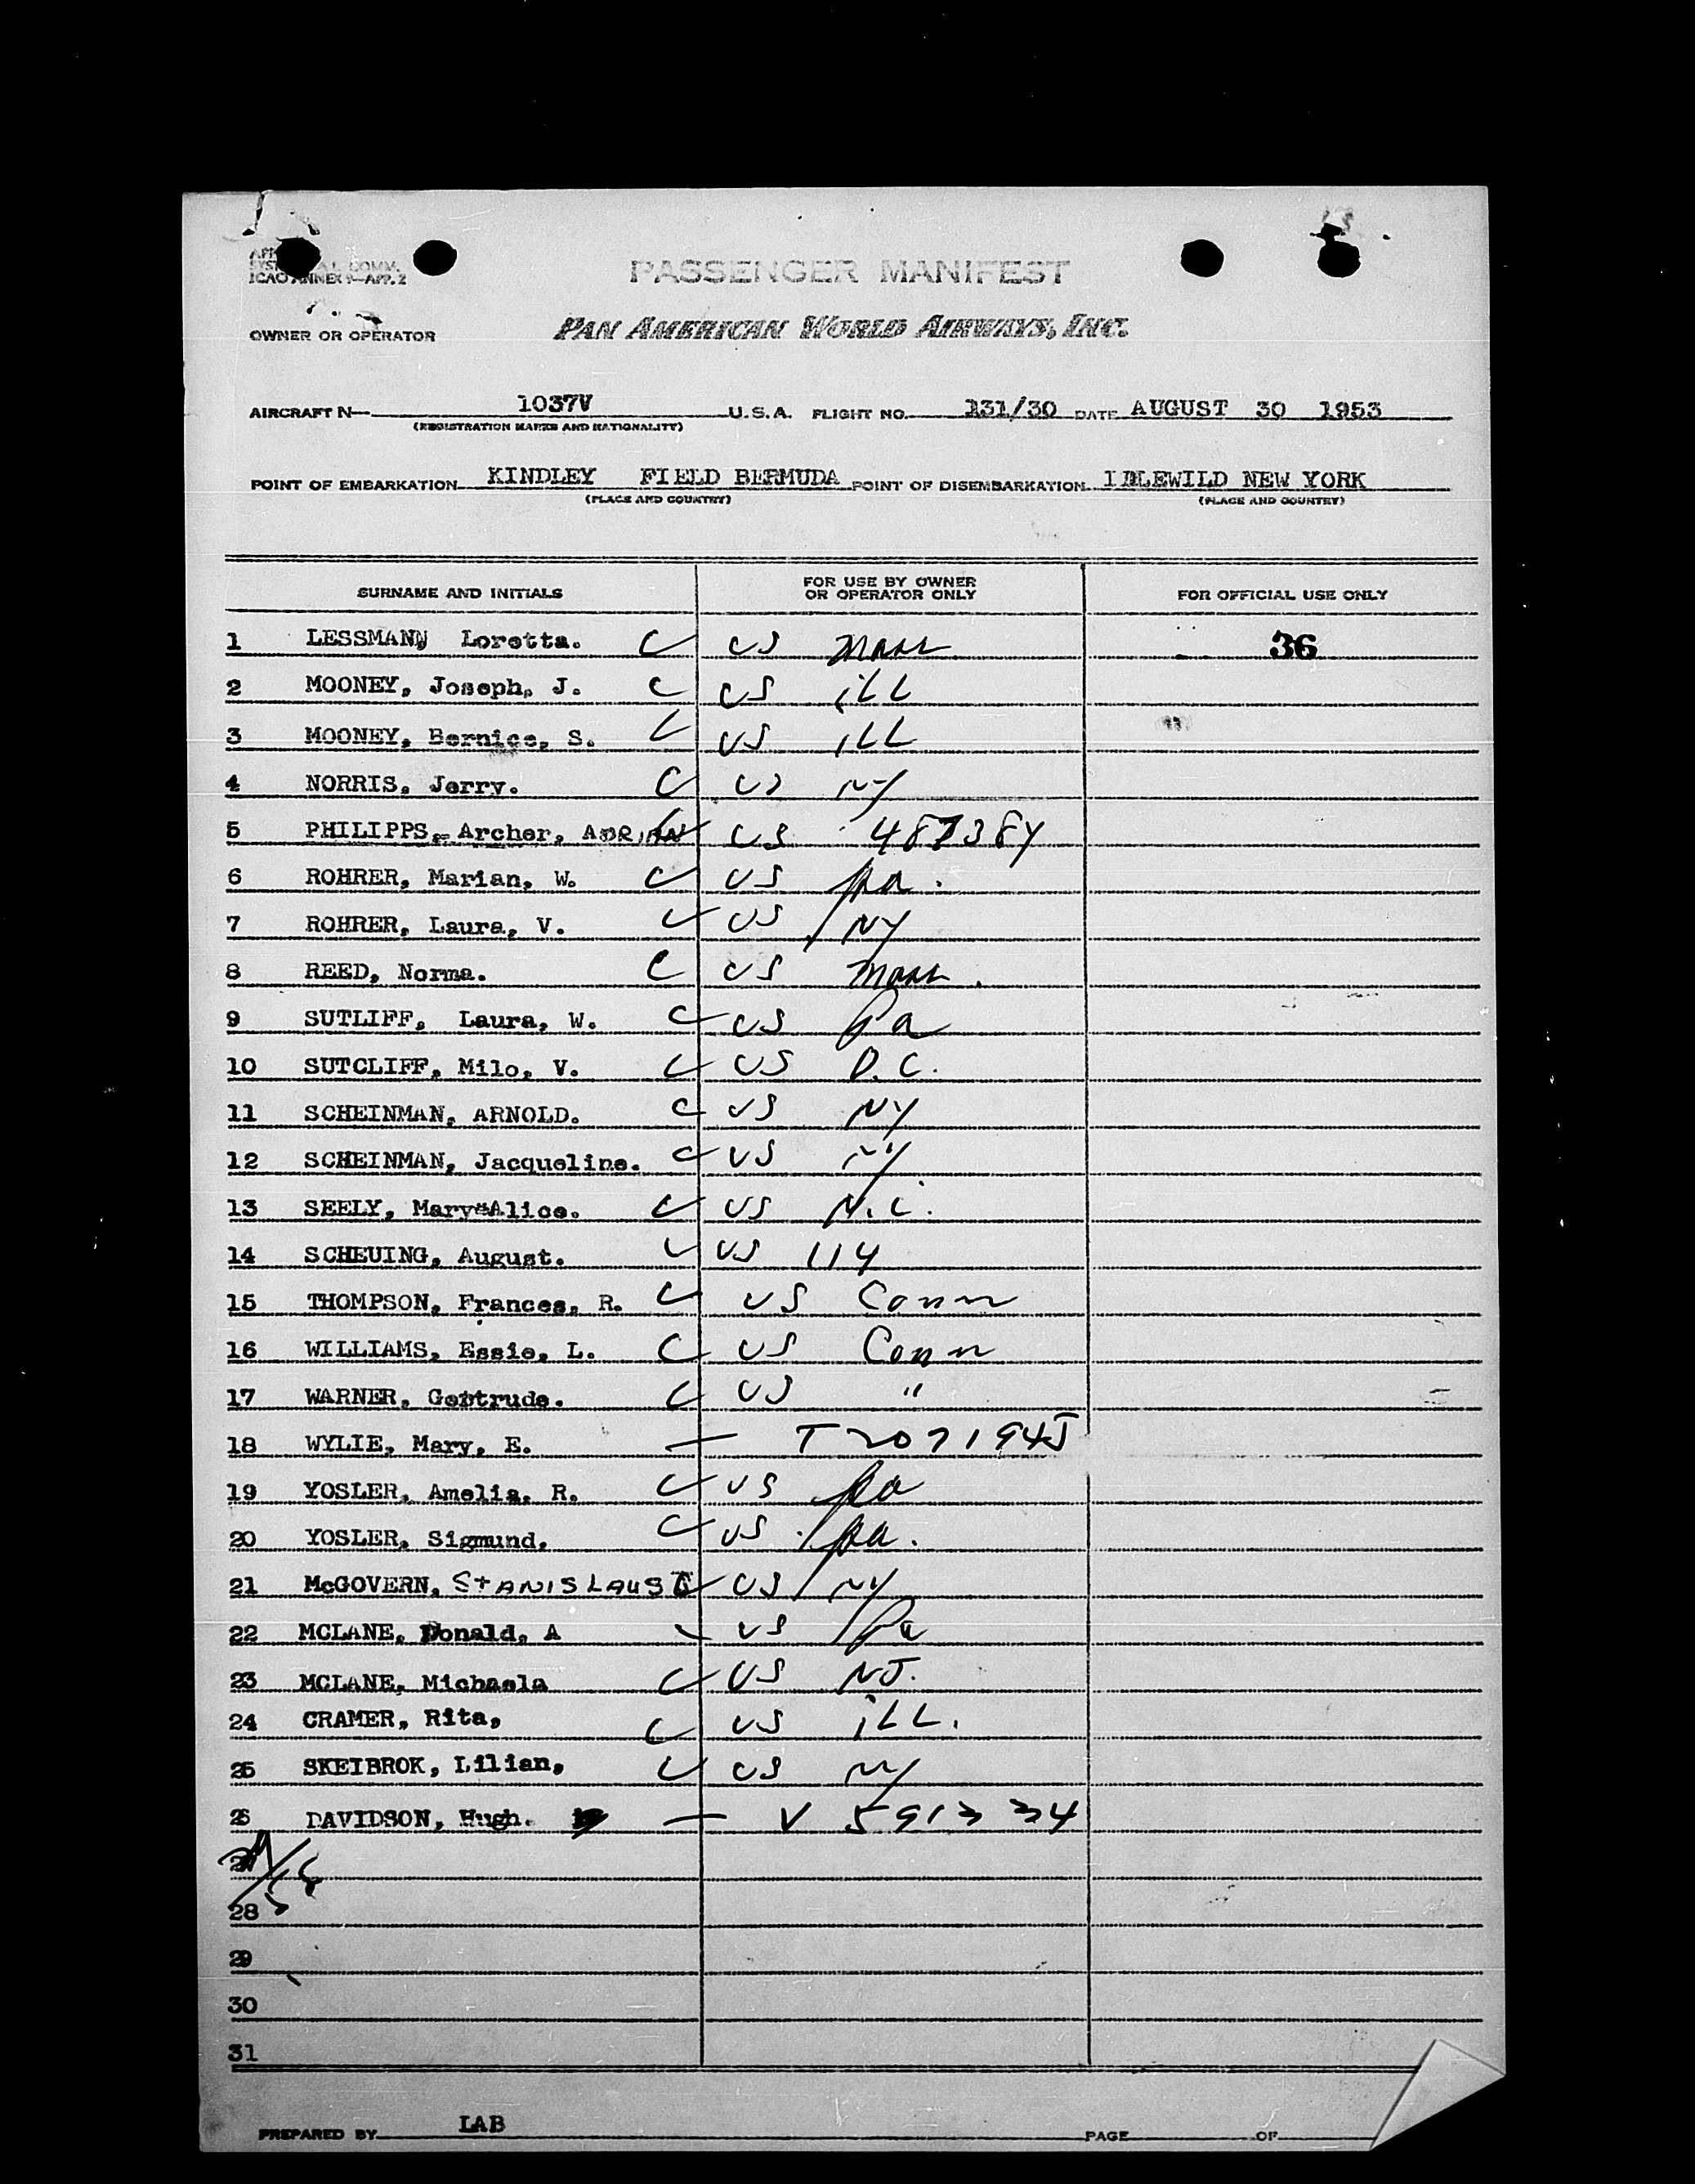 ICAO ANNEX 9—APP. 2
PASSENGER MANIFEST
OWNER OR OPERATOR PAN AMERICAN WORLD AIRWAYS, INC.
AIRCRAFT N— 1037V U.S.A. FLIGHT NO. 131/30 DATE AUGUST 30 1953
(REGISTRATION MARKS AND NATIONALITY)
POINT OF EMBARKATION KINDLEY FIELD BERMUDA POINT OF DISEMBARKATION IDLEWILD NEW YORK
(PLACE AND COUNTRY) (PLACE AND COUNTRY)
SURNAME AND INITIALS FOR USE BY OWNER OR OPERATOR ONLY FOR OFFICIAL USE ONLY
1 LESSMANN, Loretta. C US Mass 36
2 MOONEY, Joseph, J. C US ILL
3 MOONEY, Bernice, S. C US ILL
4 NORRIS, Jerry. C US NY
5 PHILIPPS, Archer, ADRIAN C US 487384
6 ROHRER, Marian, W. C US Pa.
7 ROHRER, Laura, V. C US NY
8 REED, Norma. C US Mass.
9 SUTLIFF, Laura, W. C US Pa
10 SUTCLIFF, Milo, V. C US D.C.
11 SCHEINMAN, ARNOLD. C US NY
12 SCHEINMAN, Jacqueline. C US NY
13 SEELY, Mary Alice. C US N.C.
14 SCHEUING, August. C US 114
15 THOMPSON, Frances, R. C US Conn
16 WILLIAMS, Essie, L. C US Conn
17 WARNER, Gertrude. C US "
18 WYLIE, Mary, E. — T2071945
19 YOSLER, Amelia, R. C US Pa
20 YOSLER, Sigmund, C US Pa.
21 McGOVERN, STANISLAUS C US NY
22 MCLANE, Donald, A C US Pa
23 MCLANE, Michaela C US NJ.
24 CRAMER, Rita, C US ILL.
25 SKEIBROK, Lilian, C US NY
26 DAVIDSON, Hugh. — V 591334
27
28
29
30
31
PREPARED BY LAB PAGE OF